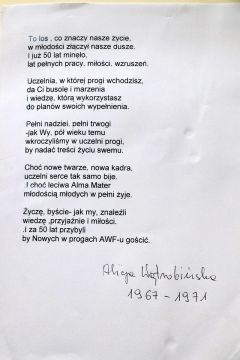 To los , co znaczy nasze życie,
w młodości złączył nasze dusze.
I już 50 lat minęło,
lat pełnych pracy, miłości, wzruszeń.
Uczelnia, w której progi wchodzisz,
da Ci busolę i marzenia
i wiedzę, którą wykorzystasz
do planów swoich wypełnienia.
Pełni nadziei, pełni trwogi
-jak Wy, pół wieku temu
wkroczyliśmy w uczelni progi,
by nadać treści życiu swemu.
Choć nowe twarze, nowa kadra,
uczelni serce tak samo bije.
.I choć leciwa Alma Mater
młodością młodych w pełni żyje.
Życzę, byście- jak my, znaleźli
wiedzę ,przyjaźnie i miłości.
.i za 50 lat przybyli
by Nowych w progach AWF-u gościć.
Alicja
1967 - 1971